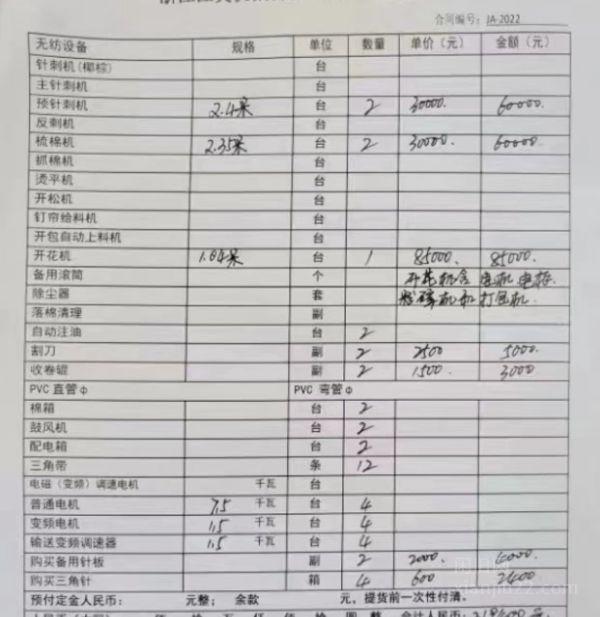 合同编号：JA-2022
无纺设备 规格 单位 数量 单价（元） 金额（元）
针刺机（椰棕） 台
主针刺机 台
预针刺机 2.4米 台 2 30000. 60000.
反刺机 台
梳棉机 2.35米 台 2 30000. 60000.
抓棉机 台
烫平机 台
开松机 台
钉帘给料机 台
开包自动上料机 台
开花机 1.04米 台 1 85000. 85000.
备用滚筒 个 开花机含 电机 电柜
除尘器 套 机和打包机.
落棉清理 副
自动注油 台 2
割刀 副 2 2500 5000.
收卷辊 副 2 1500. 3000
PVC 直管φ PVC 弯管φ
棉箱 台 2
鼓风机 台 2
配电箱 台 2
三角带 条 12
电磁（变频）调速电机 千瓦 台
普通电机 7.5 千瓦 台 4
变频电机 1.5 千瓦 台 4
输送变频调速器 1.5 千瓦 台 4
购买备用针板 副 2 2000. 4000.
购买三角针 箱 4 600 2400
预付定金人民币： 元整； 余款 元，提货前一次性付清。